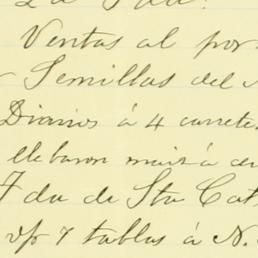 Ventas al por
Semillas del
Diarios á 4 carrete
llebaron maiz á
7 da de Sta Cat
7 tablas á N.